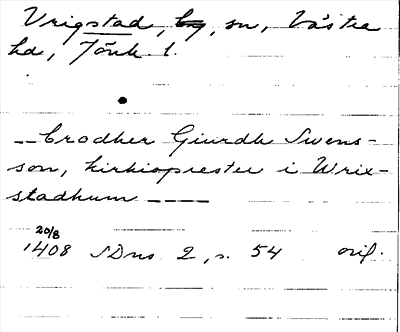 Vrigstad, by, sn, Västra
hd, Jönk. l.
--brodher Giurdh Swens-
son, kirkioprester i Wrix-
stadhum ----
20/8
1408 SDns 2, s. 54 orig.